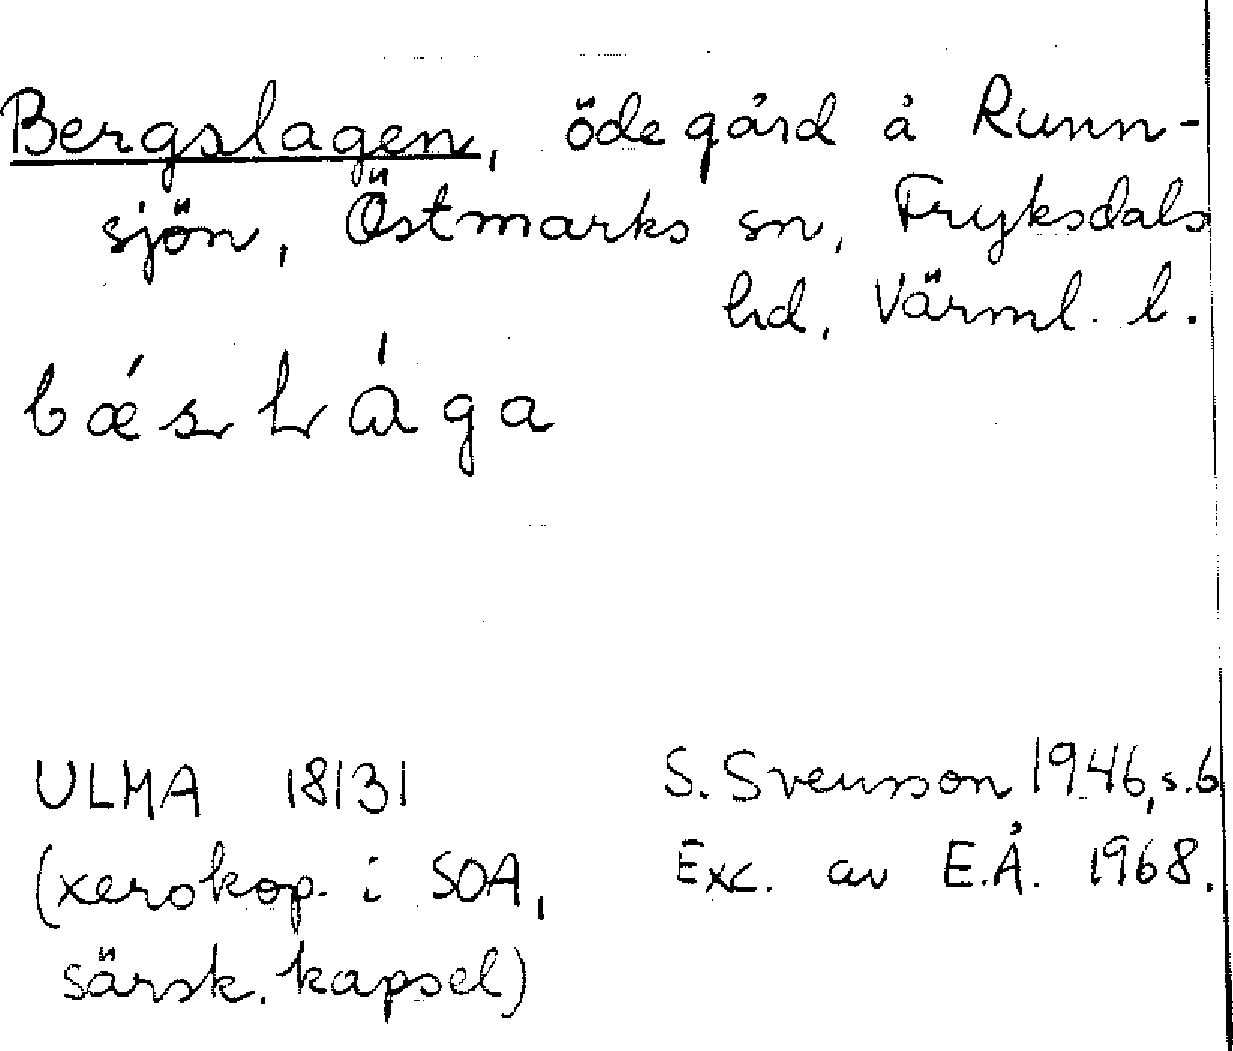 Bergslagen, ödegård å Runn-
sjön, Östmarks sn, Fryksdals
hd, Värml. l.
bǽslága
ULMA 18131
(xerokop. i SOA,
särsk. kapsel)
S. Svensson 1946, s. 6
Exc. av E.Å. 1968.